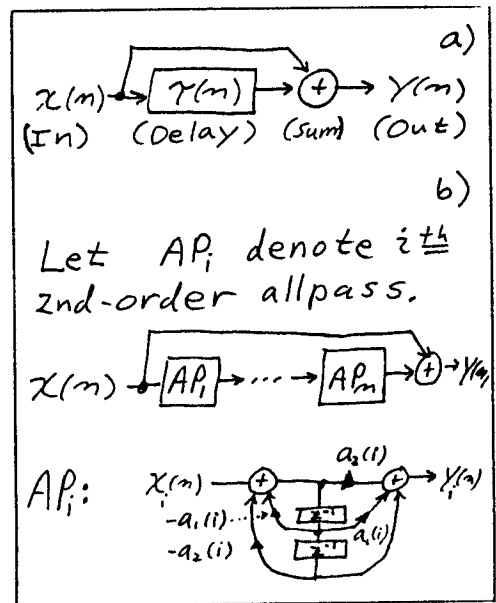 a)
x(n) τ(n) + y(n)
(In) (Delay) (Sum) (Out)
b)
Let APᵢ denote i th
2nd-order allpass.
x(n) AP₁ ... APₘ + y(n)
APᵢ: xᵢ(n) + a₂(i) + yᵢ(n)
-a₁(i) ... z⁻¹ a₁(i)
-a₂(i) z⁻¹